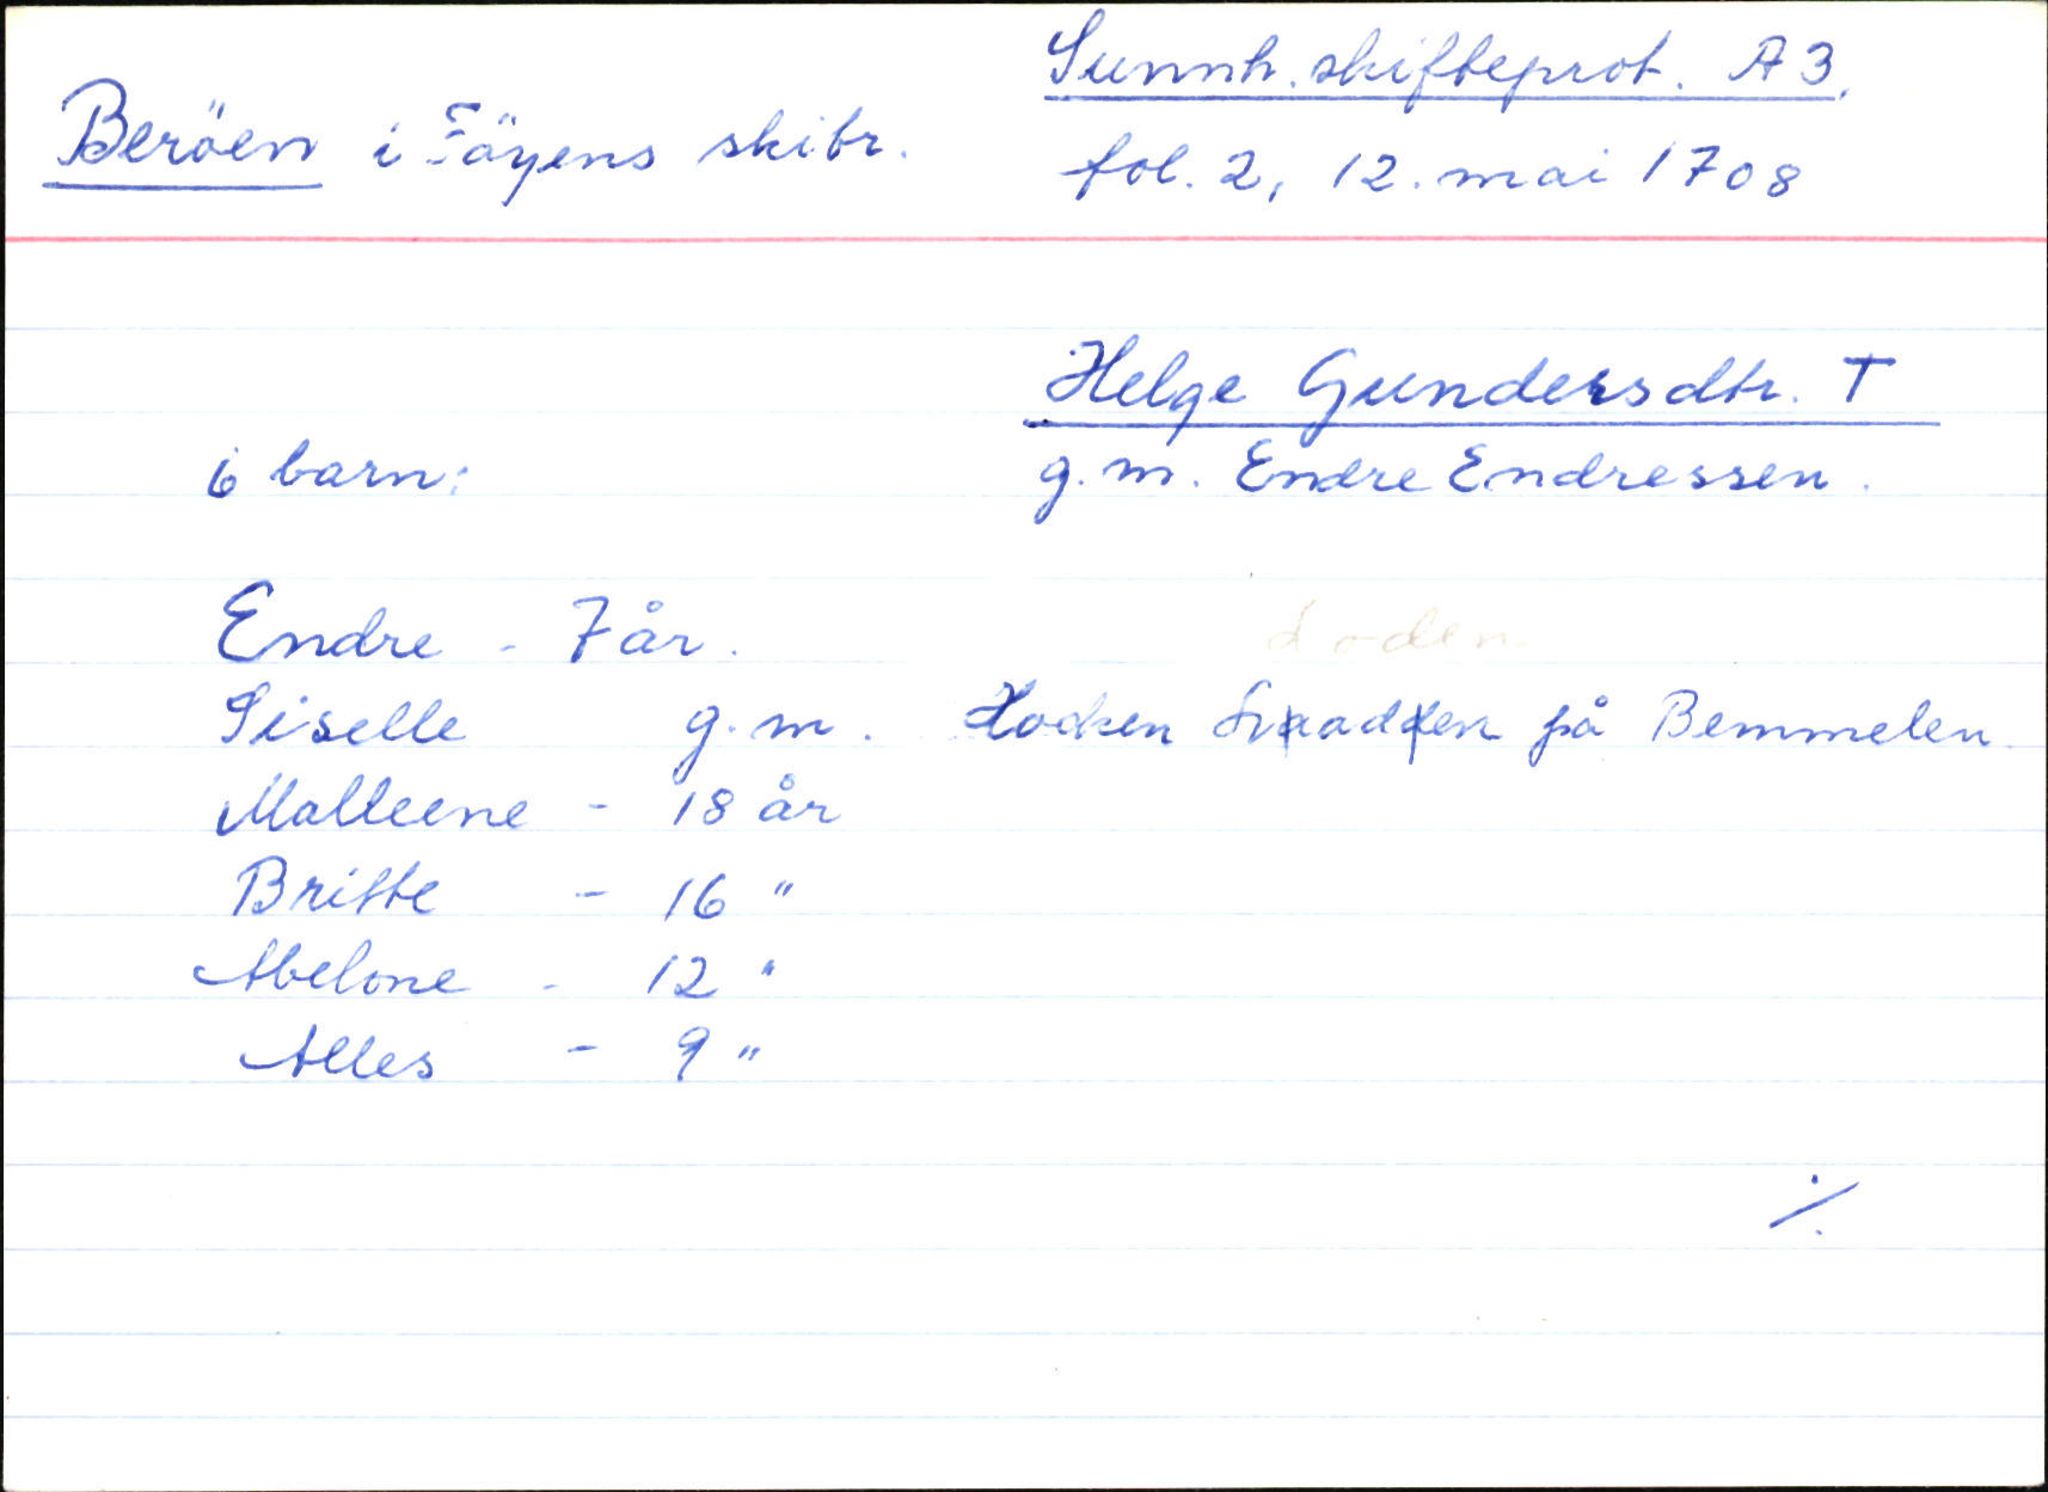 Sunnh. skifteprot. A3.
Beröen i Föyens skibr.
fol. 2, 12. mai 1708
Helge Gundersdtr. T
6 barn:
g. m. Endre Endressen.
Endre - 7 år.
Loden
Siselle g. m. Hocken på Bemmelen.
Malleene - 18 år
Britte - 16 "
Abelone - 12 "
Alles - 9 "
./.